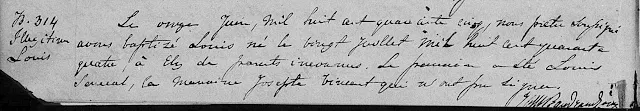 B. 314
Illegitime
Louis
Le onze Juin, Mil huit cent quarante cinq, nous prêtre soussigné
avons baptisé Louis né le vingt Juillet Mil huit cent quarante
quatre à Ely de parents inconnus. Le parrain a été Louis
la Marraine Josepte Vincent qui n'ont pu signer.